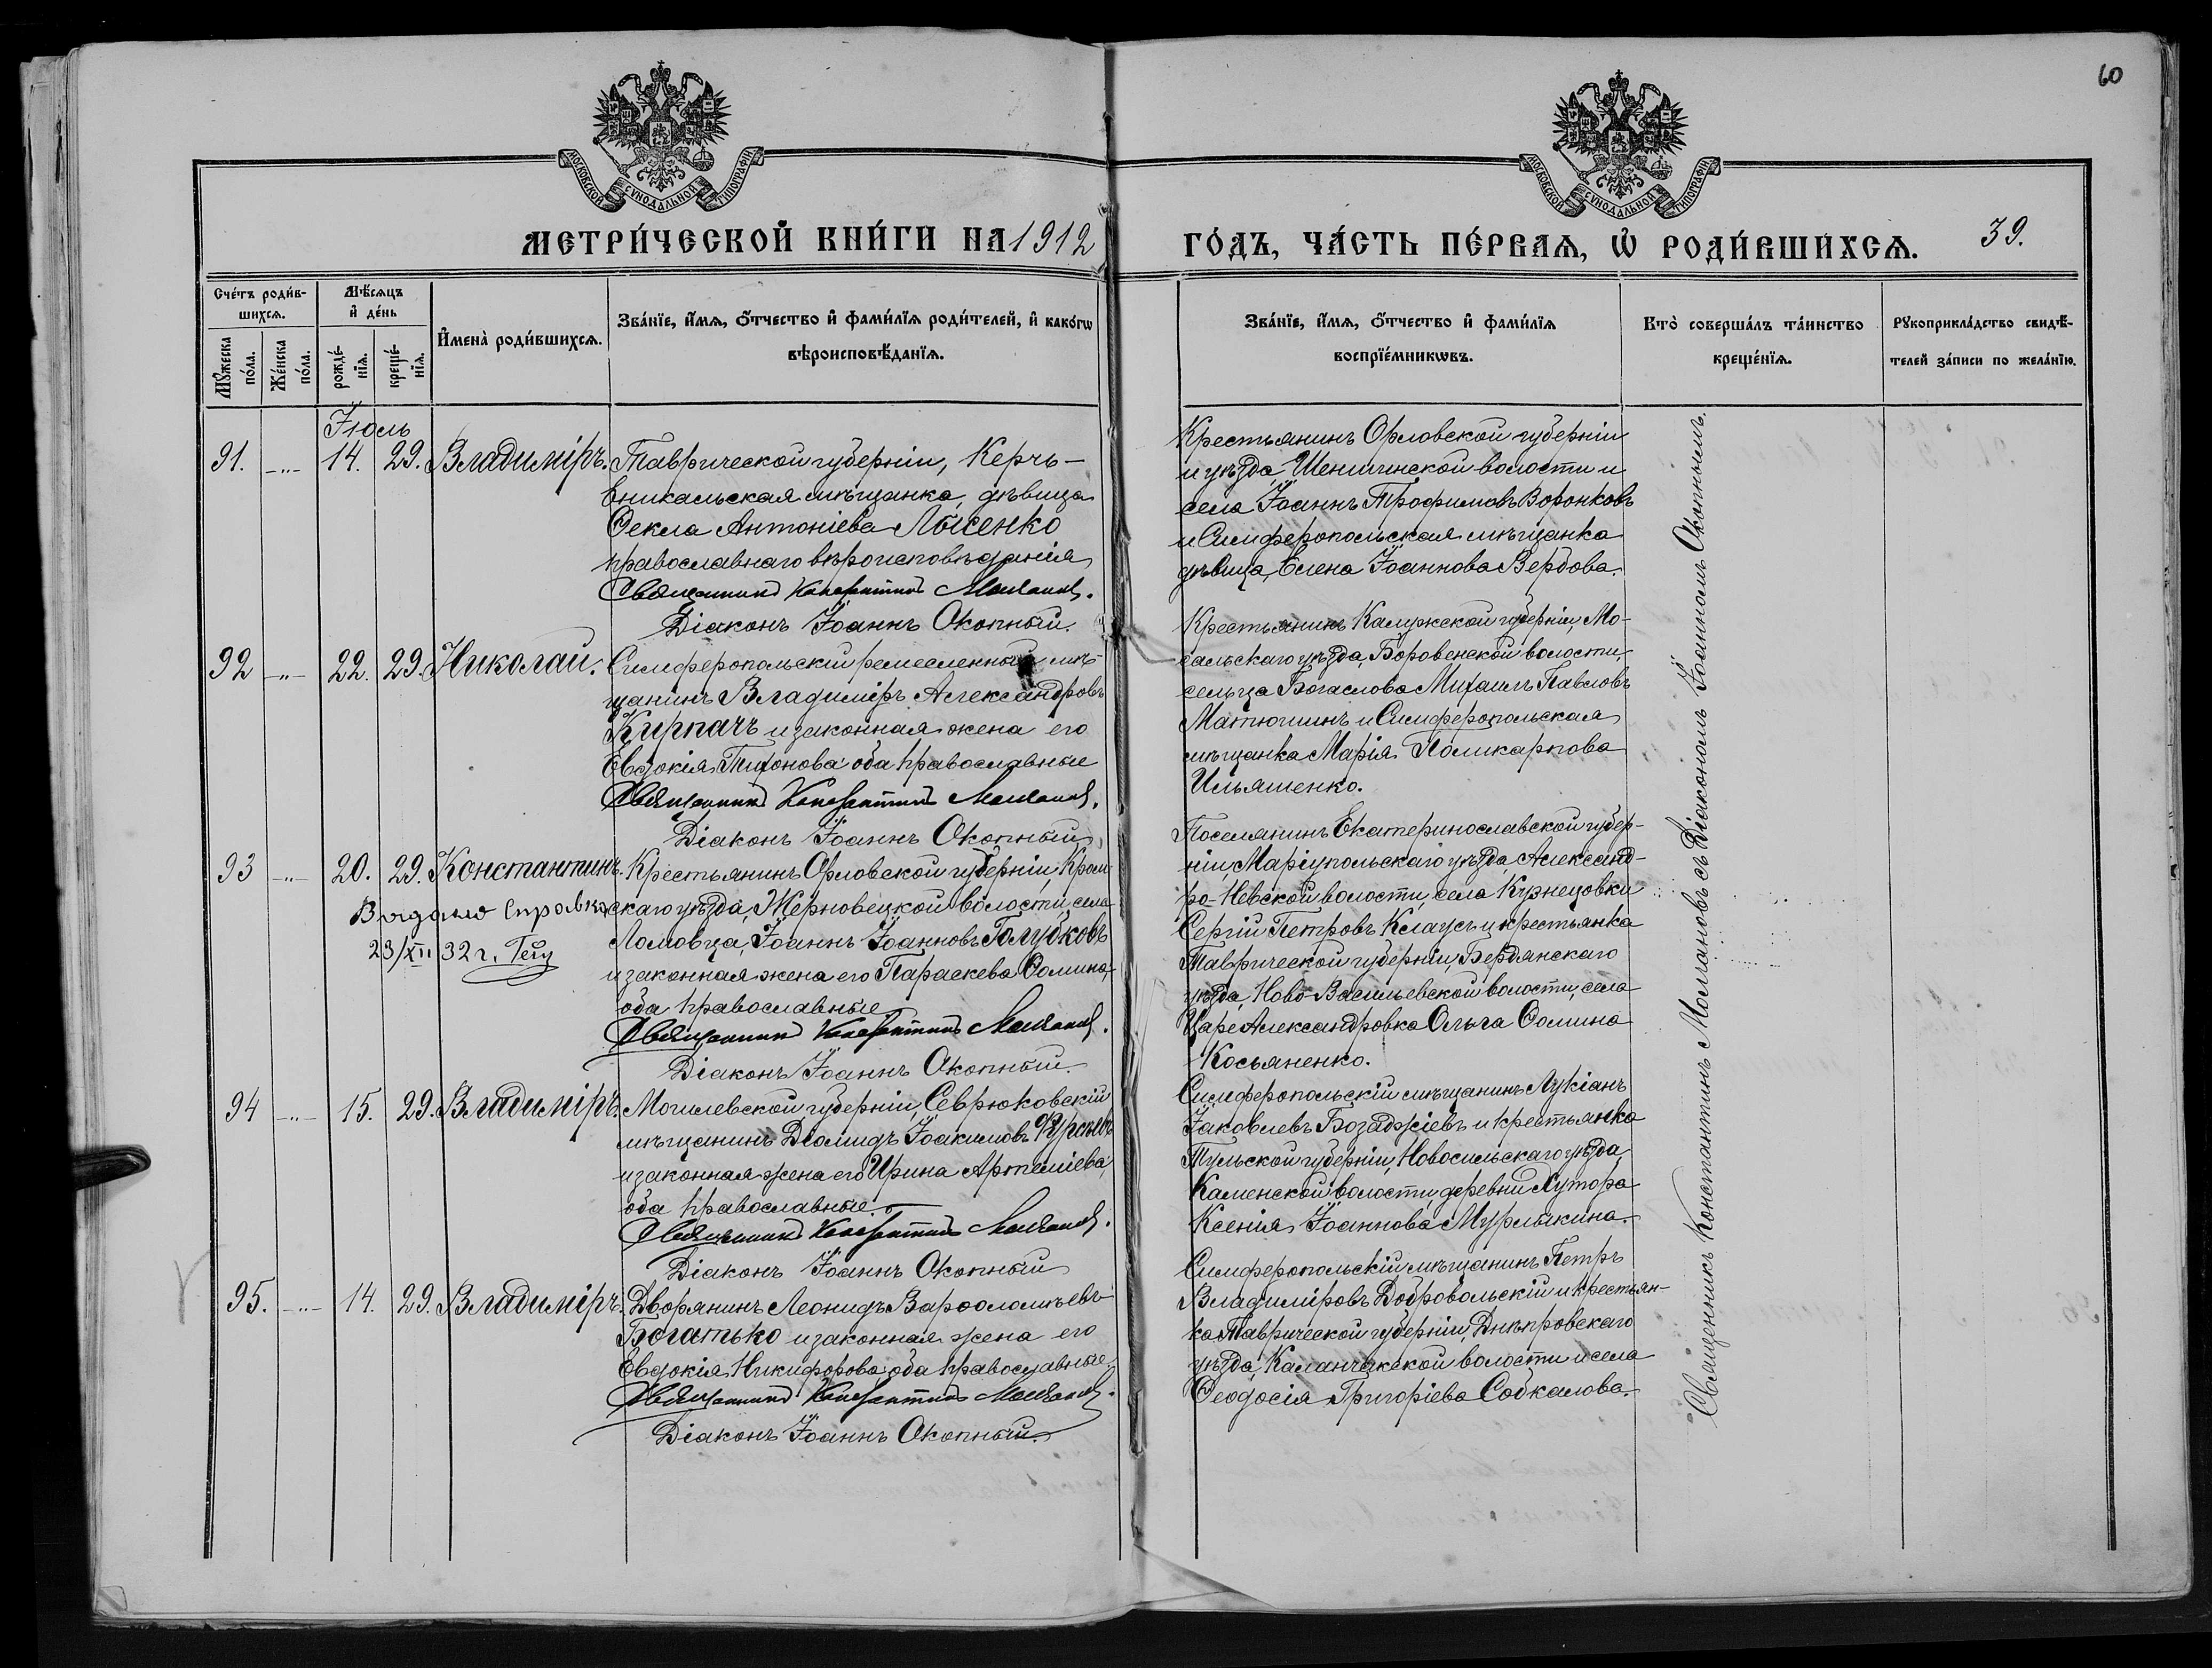 60
МОСКОВСКОЙ СѴНОДАЛЬНОЙ ТИПОГРАФІИ
МОСКОВСКОЙ СѴНОДАЛЬНОЙ ТИПОГРАФІИ
МЕТРИ́ЧЕСКОЙ КНИ́ГИ НА 1912
ГО́ДЪ, ЧА́СТЬ ПЕ́РВАѦ, Ѽ РОДИ́ВШИХСѦ. 39.
Сче́тъ роди́в-
шихсѧ.
Мꙋ́жеска по́ла.
Же́нска по́ла.
Мѣ́сѧцъ и҆ де́нь
рожде́-
нїѧ.
креще́-
нїѧ.
И҆мена̀ роди́вшихсѧ.
Зва́нїе, и҆́мѧ, ѻ҆́тчество и҆ фами́лїѧ роди́телей, и҆ како́гѡ
вѣроисповѣ́данїѧ.
Зва́нїе, и҆́мѧ, ѻ҆́тчество и҆ фами́лїѧ
воспрїе́мникѡвъ.
Кто̀ соверша́лъ та́инство
креще́нїѧ.
Рꙋкоприкла́дство свидѣ́-
телей за́писи по жела́нїю.
Іюль
91. -"- 14. 29. Владиміръ.
Таврической губерніи, Керчь-
Еникальская мѣщанка, дѣвица
Ѳекла Антоніева Лысенко
православнаго вѣроисповѣданія
Священникъ Константинъ Молчановъ.
Діаконъ Іоаннъ Окопный.
Крестьянинъ Орловской губерніи
и уѣзда, Шеншинской волости и
села Іоаннъ Трофимовъ Воронковъ
и Симферопольская мѣщанка
дѣвица, Елена Іоаннова Вербова.
92 -"- 22. 29. Николай.
Симферопольскій ремесленный мѣ-
щанинъ Владиміръ Александровъ
Кирпачъ и законная жена его
Евдокія Тихонова оба православные
Священникъ Константинъ Молчановъ.
Діаконъ Іоаннъ Окопный
Крестьянинъ Калужской губерніи, Мо-
сальскаго уѣзда, Боровенской волости,
сельца Богаслова Михаилъ Павловъ
Матюшинъ и Симферопольская
мѣщанка Марія Поликарпова
Ильяшенко.
93 -"- 20. 29. Константинъ.
Выдано справка
23/XII 32 г.
Крестьянинъ Орловской губерніи, Кром-
скаго уѣзда, Жерновецкой волости, села
Ломовца, Іоаннъ Іоанновъ Голубковъ
и законная жена его Параскева Ѳомина,
оба православные
Священникъ Константинъ Молчановъ.
Діаконъ Іоаннъ Окопный.
Поселянинъ Екатеринославской губер-
ніи, Маріупольскаго уѣзда, Александ-
ро-Невской волости, села Кузнецовки
Сергій Петровъ Клаусъ и крестьянка
Таврической губерніи, Бердянскаго
уѣзда, Ново-Васильевской волости, села
Царе Александровка Ольга Ѳомина
Косьяненко.
94 -"- 15. 29. Владиміръ.
Могилевской губерніи, Севрюковскій
мѣщанинъ Діомидъ Іоакимовъ
и законная жена его Ирина Артеміева,
оба православные.
Священникъ Константинъ Молчановъ.
Діаконъ Іоаннъ Окопный
Симферопольскій мѣщанинъ Лукіанъ
Іаковлевъ Бозаджіевъ и крестьянка
Тульской губерніи, Новосильскаго уѣзда,
Каменской волости, деревни Хутора
Ксенія Іоаннова Мурлыкина.
95. -"- 14. 29. Владиміръ.
Дворянинъ Леонидъ Варѳоломѣевъ
Богатько и законная жена его
Евдокія Никифорова, оба православные.
Священникъ Константинъ Молчановъ.
Діаконъ Іоаннъ Окопный.
Симферопольскій мѣщанинъ Петръ
Владиміровъ Добровольскій и крестьян-
ка Таврической губерніи, Днѣпровскаго
уѣзда, Каланчакской волости и села
Ѳеодосія Григоріева Собкалова.
Священникъ Константинъ Молчановъ съ Діакономъ Іоанномъ Окопнымъ.